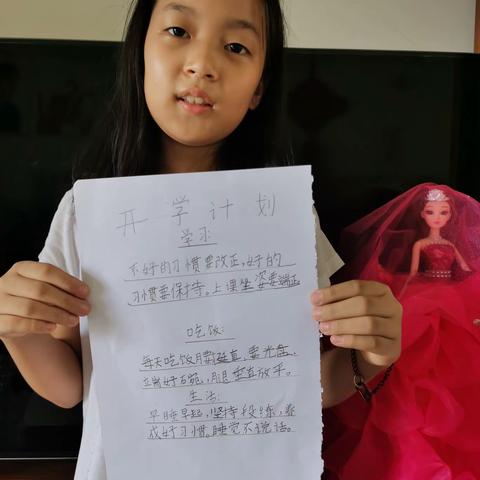 开学计划
学习:
不好的习惯要改正,好的
习惯要保持。上课坐姿要端正
吃饭:
每天吃饭腰挺直,要光盘,
立时好石碗,腿垂直放平。
生活:
早睡早起,坚持段练,养
成好习惯。睡觉不说话。